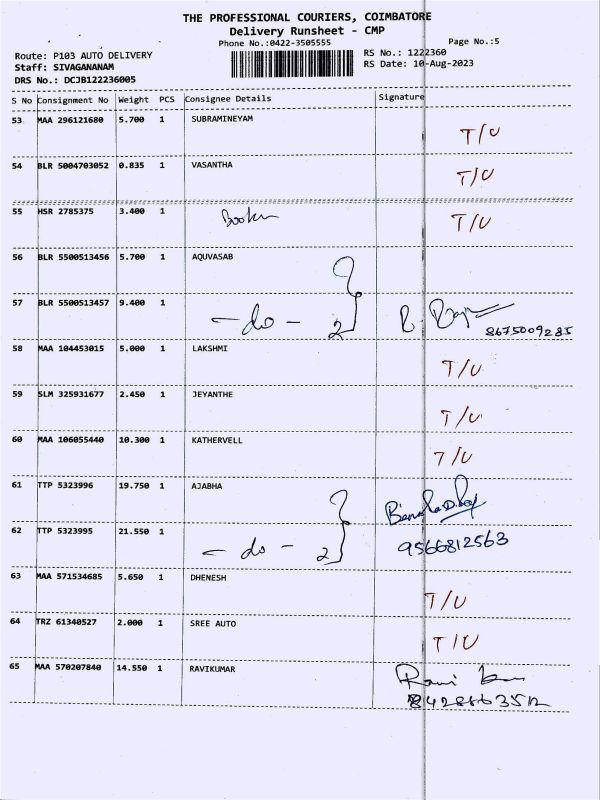 THE PROFESSIONAL COURIERS, COIMBATORE
Delivery Runsheet - CMP
Phone No.:0422-3505555
Page No.:5
Route: P103 AUTO DELIVERY
RS No.: 1222360
Staff: SIVAGANANAM
RS Date: 10-Aug-2023
DRS No.: DCJB122236005
S No Consignment No Weight PCS Consignee Details Signature
53 MAA 296121680 5.700 1 SUBRAMINEYAM
T/U
54 BLR 5004703052 0.835 1 VASANTHA
T/U
55 HSR 2785375 3.400 1
T/U
56 BLR 5500513456 5.700 1 AQUVASAB
57 BLR 5500513457 9.400 1
- do - 2
8675009285
58 MAA 104453015 5.000 1 LAKSHMI
T/U
59 SLM 325931677 2.450 1 JEYANTHE
T/U
60 MAA 106055440 10.300 1 KATHERVELL
T/U
61 TTP 5323996 19.750 1 AJABHA
62 TTP 5323995 21.550 1
- do - 2
9566812563
63 MAA 571534685 5.650 1 DHENESH
T/U
64 TRZ 61340527 2.000 1 SREE AUTO
T/U
65 MAA 570207840 14.550 1 RAVIKUMAR